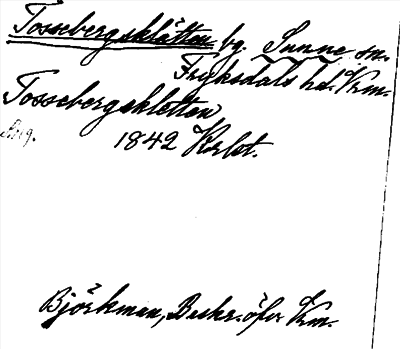 Tossebergsklätten bg. Sunne sn.
Fryksdals hd. Vrm.
Tossebergskletten
1842 Krbt.
Björkman, Beskr. öfver Vrm.